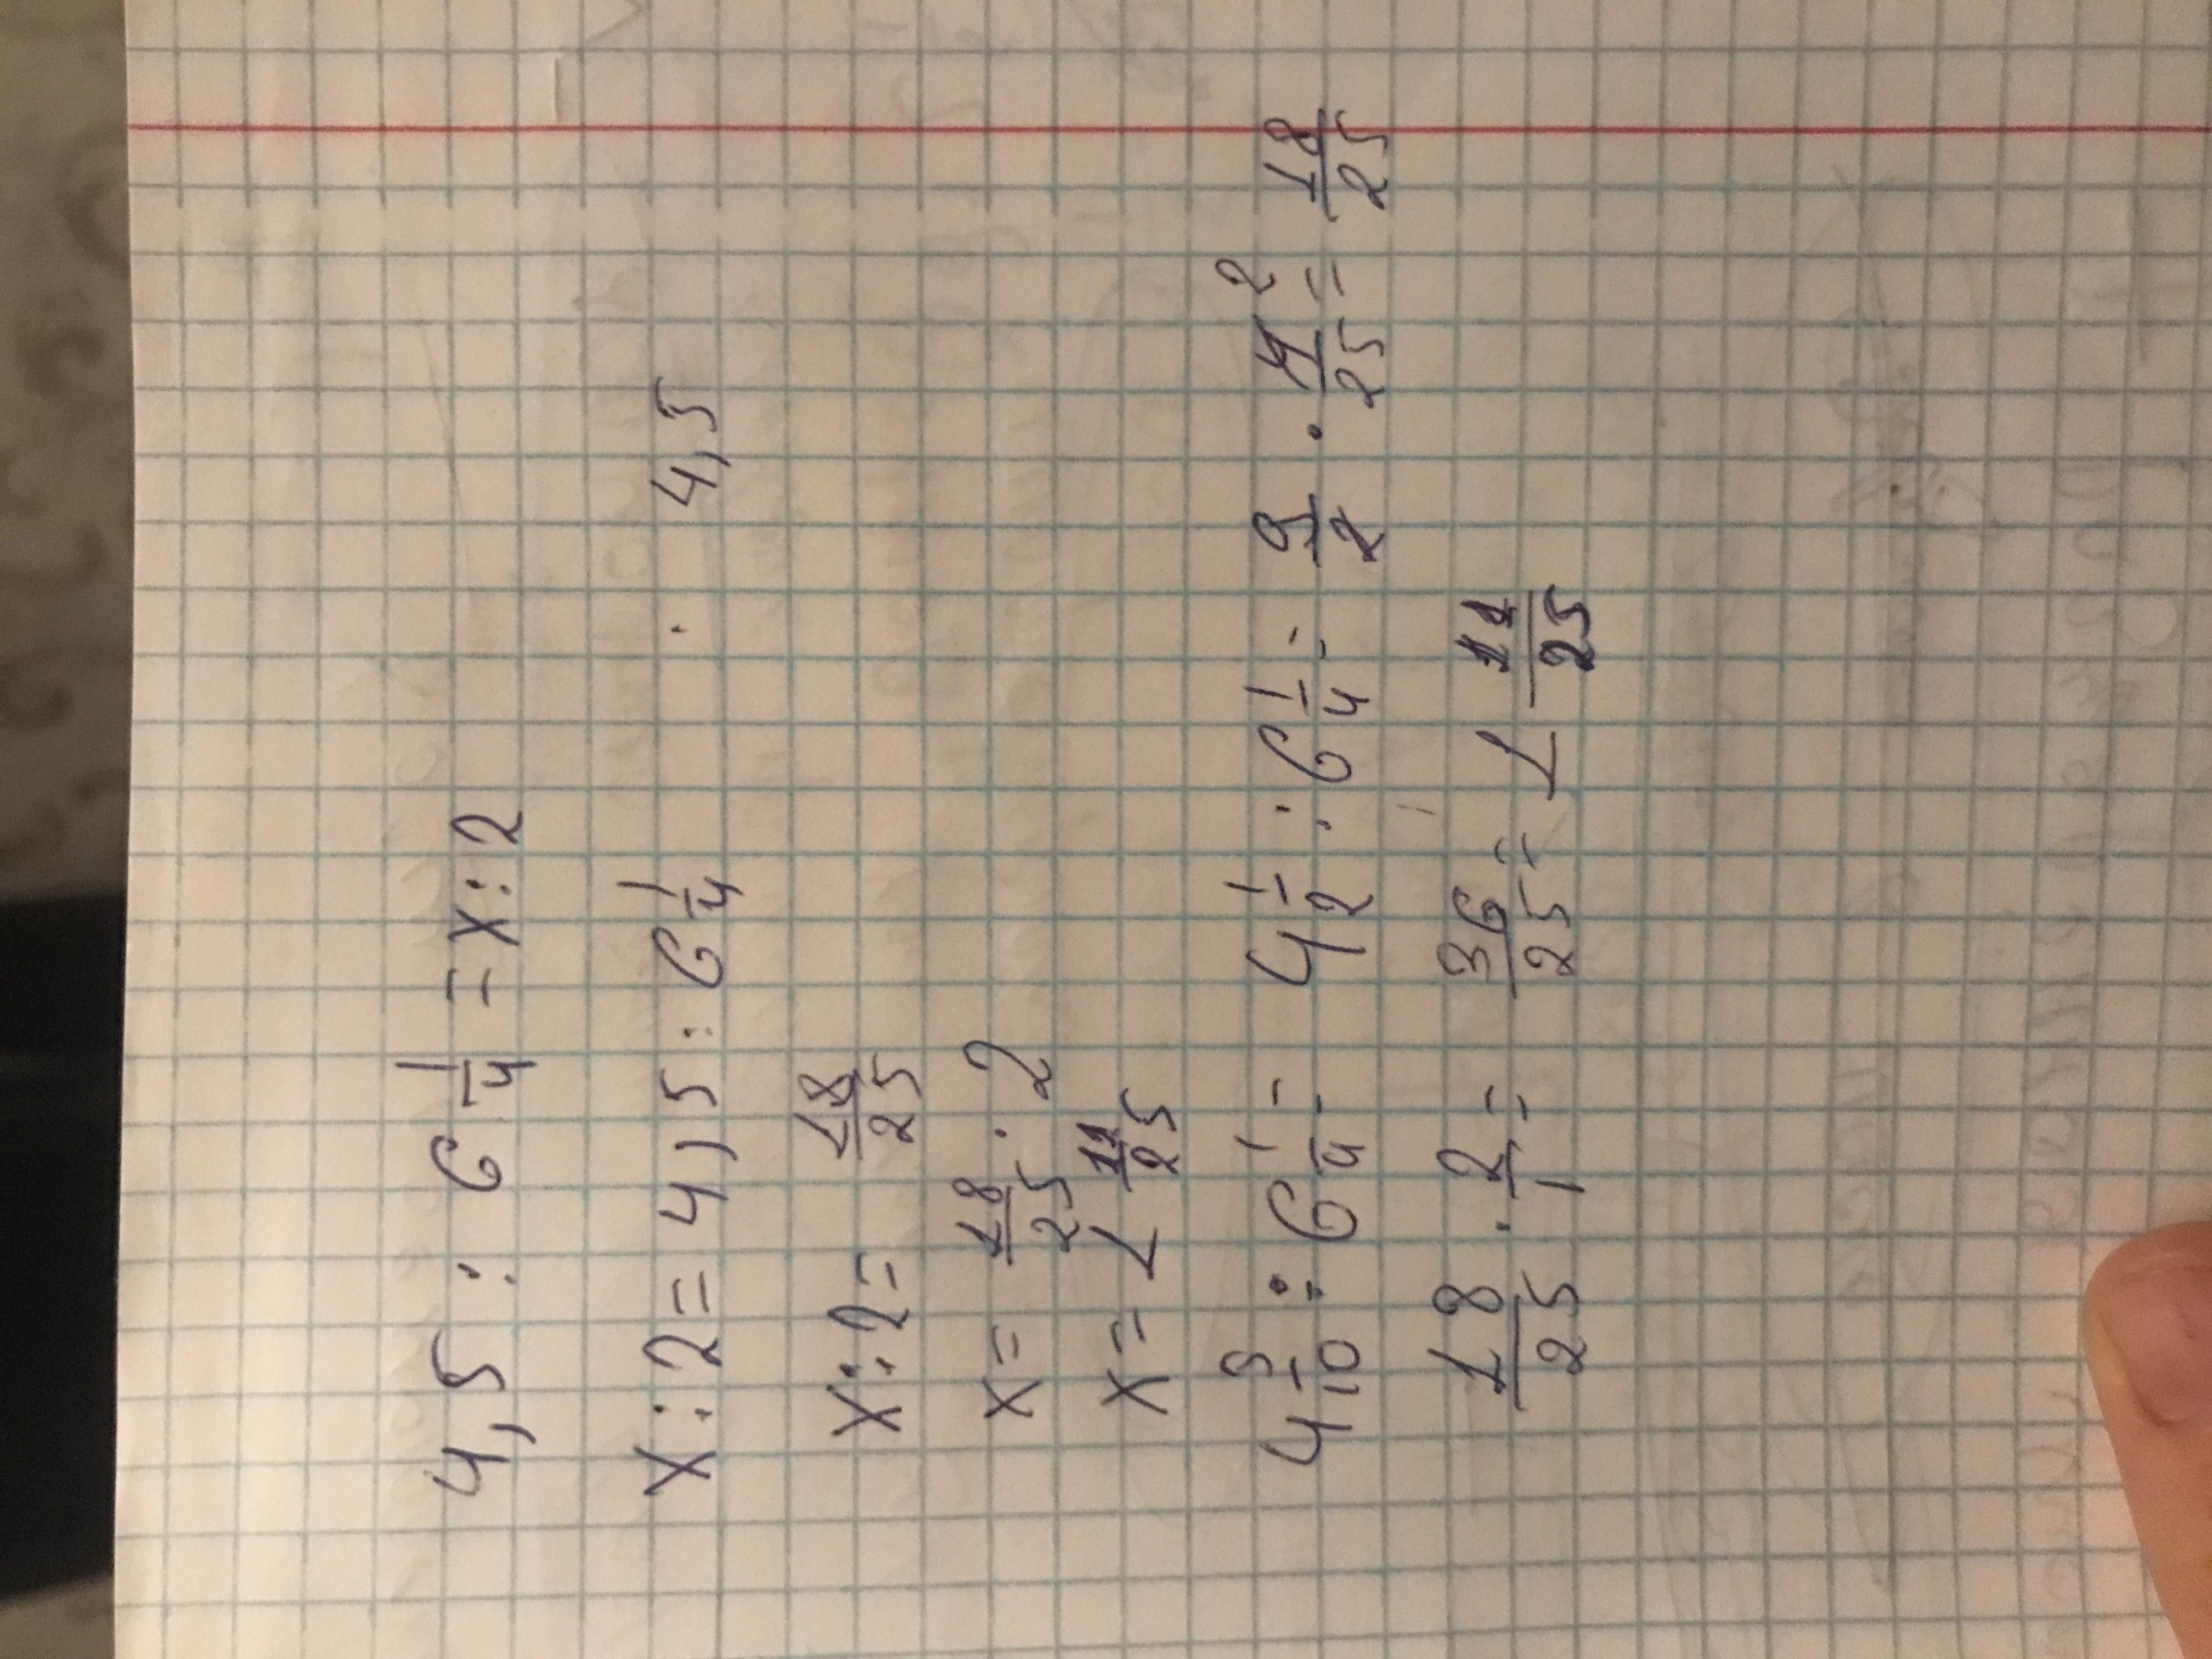 4,5 : 6 1/4 = x : 2
x : 2 = 4,5 : 6 1/4 4,5
x : 2 = 18/25
x = 18/25 · 2
x = 1 11/25
4 5/10 : 6 1/4 = 4 1/2 : 6 1/4 = 9/2 · 4/25 2 = 18/25
18/25 · 2/1 = 36/25 = 1 11/25